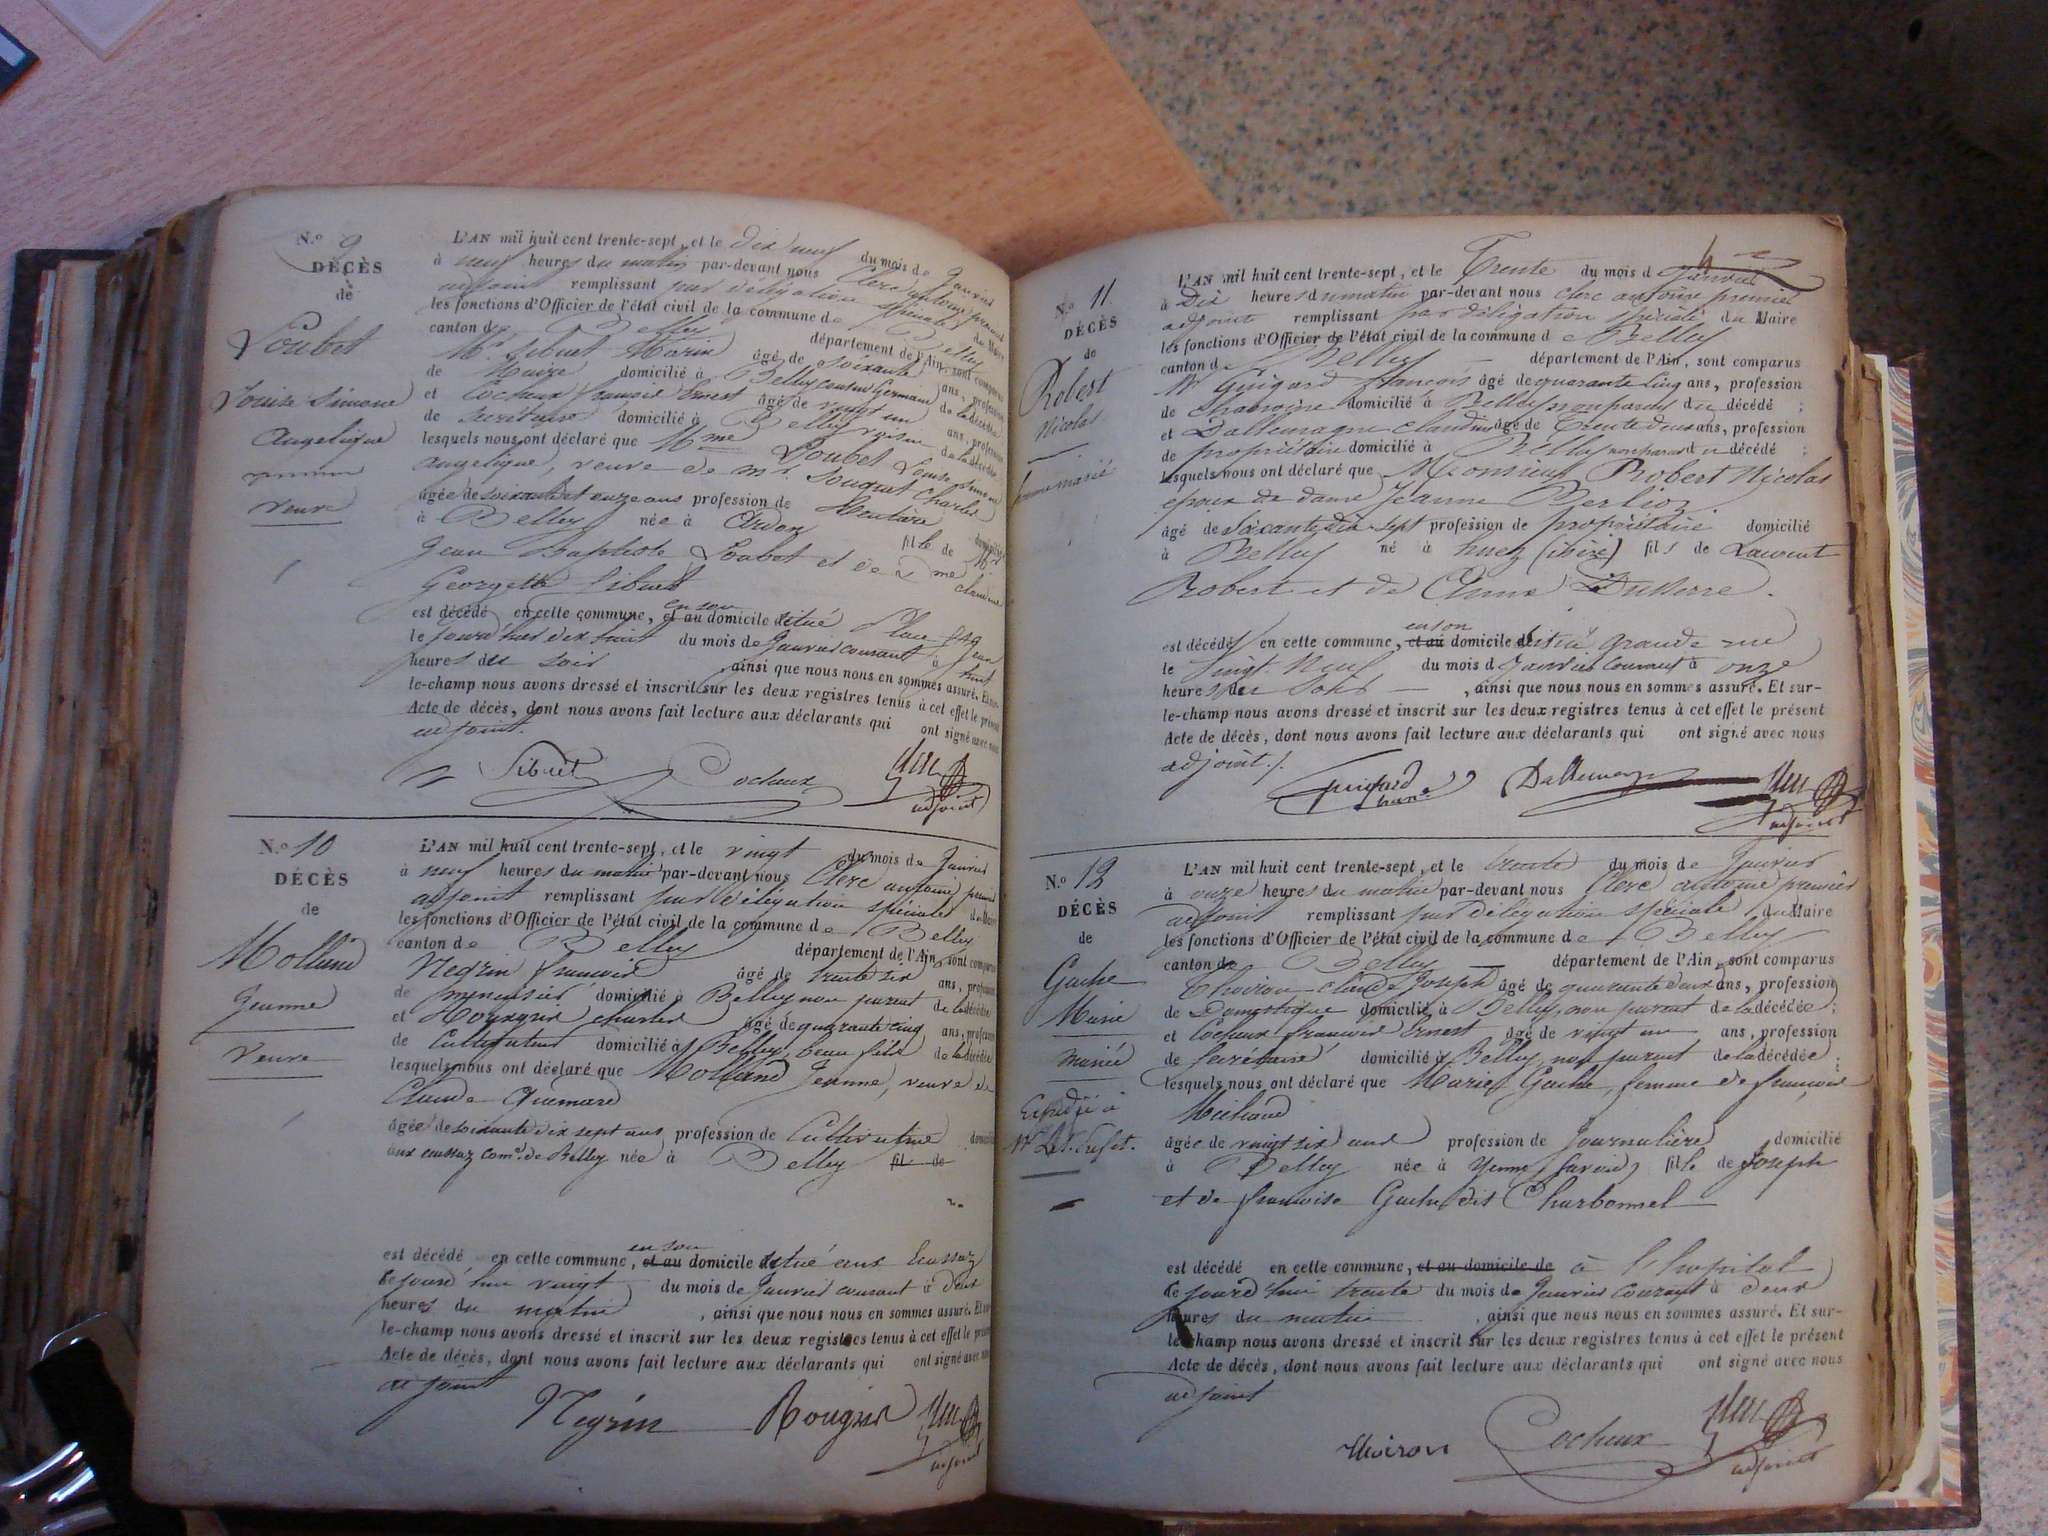 N.º 9
DÉCÈS
de
Loubet
Louise Simone
Angelique
veuve
L'AN mil huit cent trente-sept, et le dix neuf du mois de Janvier
à neuf heures du matin par-devant nous Clerc antoine premier
adjoint remplissant par délégation spéciale du Maire
les fonctions d'Officier de l'état civil de la commune de Belley
canton de Belley département de l'Ain, sont comparus
Mr Sibuet Marin âgé de soixante ans, profession
de Maire domicilié à Belley cousin Germain de la décédée
et Cocheux françois Ernest âgé de vingt un ans, profession
de Secrétaire domicilié à Belley voisin de la décédée
lesquels nous ont déclaré que Mme Loubet Louise Simone
Angelique, veuve de Mr. Souquet Charles
âgée de soixante et onze ans profession de Rentière domicilié
à Belley née à Ordon fille de Mr
Jean Baptiste Loubet et de Dme Claudine
Georgette Sibuet
est décédé en cette commune, et au en son domicile situé Place
le jourd'hui dix huit du mois de Janvier courant à huit
heures du soir, ainsi que nous nous en sommes assuré. Et sur-
le-champ nous avons dressé et inscrit sur les deux registres tenus à cet effet le présent
Acte de décès, dont nous avons fait lecture aux déclarants qui ont signé avec nous
adjoint.
Sibuet Cocheux Clerc
adjoint
N.º 10
DÉCÈS
de
Molland
Jeanne
Veuve
L'AN mil huit cent trente-sept, et le vingt du mois de Janvier
à neuf heures du matin par-devant nous Clerc antoine premier
adjoint remplissant par délégation spéciale du Maire
les fonctions d'Officier de l'état civil de la commune de Belley
canton de Belley département de l'Ain, sont comparus
Negrin françois âgé de trente six ans, profession
de domicilié à Belley non parent de la décédée
et Rougier charles âgé de quarante cinq ans, profession
de Cultivateur domicilié à Belley, beau fils de la décédée
lesquels nous ont déclaré que Molland Jeanne, veuve de
Claude Quemard
âgée de soixante dix sept ans profession de Cultivatrice domicilié
aux ecassaz come. de Belley née à Belley fil de
est décédé en cette commune, et au en son domicile situé aux Ecassaz
le jourd'hui vingt du mois de Janvier courant à deux
heures du matin, ainsi que nous nous en sommes assuré. Et sur-
le-champ nous avons dressé et inscrit sur les deux registres tenus à cet effet le présent
Acte de décès, dont nous avons fait lecture aux déclarants qui ont signé avec nous
adjoint
Negrin Rougier Clerc
adjoint
4
N.º 11
DÉCÈS
de
Robert
Nicolas
homme marié
L'AN mil huit cent trente-sept, et le Trente du mois d Janvier
à Dix heures du matin par-devant nous clerc antoine premier
adjoint remplissant par délégation spéciale du Maire
les fonctions d'Officier de l'état civil de la commune d e Belley
canton de Belley département de l'Ain, sont comparus
Mr Guigard françois âgé de quarante cinq ans, profession
de Chanoine domicilié à Belley non parent du décédé ;
et Dallemagne Claudius âgé de Trente deux ans, profession
de propriétaire domicilié à Belley non parent du décédé ;
lesquels nous ont déclaré que Monsieur Robert Nicolas
epoux de dame Jeanne Berlioz
âgé de Soixante dix-sept profession de propriétaire domicilié
à Belley né à huez (isère) fils de Laurent
Robert et de Anne Dusserre.
est décédé en cette commune, et au en son domicile situé grande rue
le Vingt Neuf du mois d Janvier courant à onze
heures du Soir, ainsi que nous nous en sommes assuré. Et sur-
le-champ nous avons dressé et inscrit sur les deux registres tenus à cet effet le présent
Acte de décès, dont nous avons fait lecture aux déclarants qui ont signé avec nous
adjoint./.
Guigard Dallemagne Clerc
chane adjoint
N.º 12
DÉCÈS
de
Gache
Marie
mariée
Expédié à
Mr Le s. Prefet.
L'AN mil huit cent trente-sept, et le trente du mois de Janvier
à onze heures du matin par-devant nous Clerc antoine premier
adjoint remplissant par délégation spéciale du Maire
les fonctions d'Officier de l'état civil de la commune de Belley
canton de Belley département de l'Ain, sont comparus
Thoiron Claude Joseph âgé de quarante deux ans, profession
de Domestique domicilié à Belley, non parent de la décédée ;
et Cocheux françois Ernest âgé de vingt un ans, profession
de Secrétaire domicilié à Belley, non parent de la décédée ;
lesquels nous ont déclaré que Marie Gache, femme de françois
Michaud
âgée de vingt six ans profession de Journalière domicilié
à Belley née à Yenne (Savoie) fille de Joseph
et de françoise Gache dit Charbonnel
est décédé en cette commune, et au domicile de à l'hopital
le jourd'hui trente du mois de Janvier courant à deux
heures du matin, ainsi que nous nous en sommes assuré. Et sur-
le-champ nous avons dressé et inscrit sur les deux registres tenus à cet effet le présent
Acte de décès, dont nous avons fait lecture aux déclarants qui ont signé avec nous
adjoint
Thoiron Cocheux Clerc
adjoint